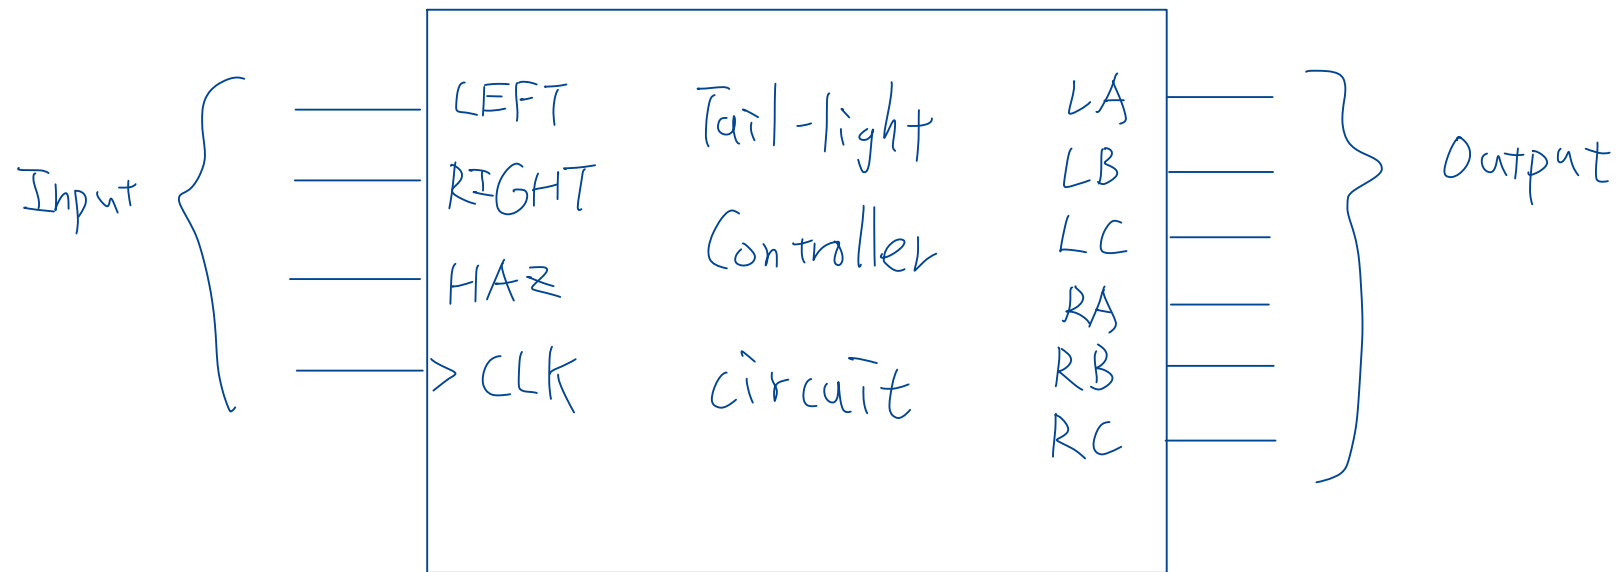 Input
LEFT
RIGHT
HAZ
> CLK
Tail-light
Controller
circuit
LA
LB
LC
RA
RB
RC
Output